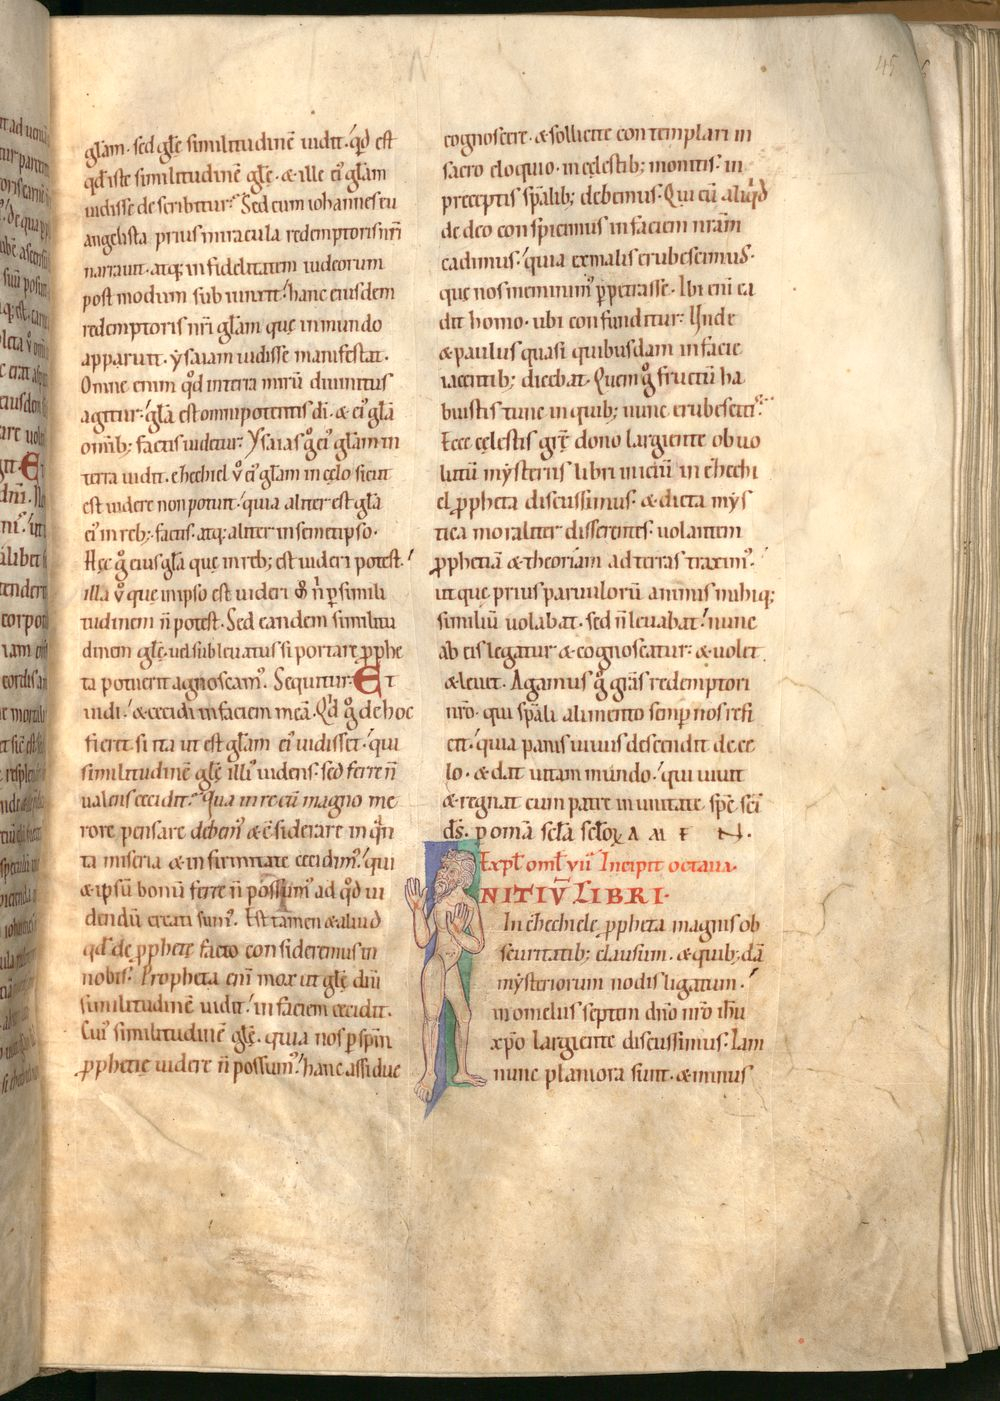 głam. sed glę similitudinē uidit. qd̄ est
qd̄ iste similitudinē glę. & ille ei' glam
uidisse describitur. Sed cum iohannes eu
angelista prius miracula redemptoris nr̄i
narrauit. atq; infidelitatem iudeorum
postmodum subiunxit. hanc eiusdem
redemptoris nr̄i glam quę in mundo
apparuit. ysaiam uidisse manifestat.
Omne enim qd̄ in terra mirū diuinitus
agitur. gla est omnipotentis dī. & ei' gla
om̄ib; factis uidetur. Ysaias ḡ ei' glam in
terra uidit. ezechiel ů ei' glam in cęlo sicut
est uidere non potuit. quia aliter est gla
ei' in reb; factis. atq; aliter in semetipso.
Hęc ḡ eius gla quę in reb; est uideri potest.
illa ů quę in ipso est uideri m° n̄ p simili
tudinem n̄ potest. Sed eandem similitu
dinem glę. uel subleuatus si portare pphe
ta potuerit agnoscam'. Sequitur. Et
uidi. & cecidi in faciem meā. Qd̄ ḡ de hoc
fieret si ita ut est glam ei' uidisset. qui
similitudinē glę illi' uidens. sed ferre n̄
ualens cecidit. Qua in re cū magno me
rore pensare debem' & c̄siderare in q̄n
ta miseria & infirmitate cecidim'. qui
& ipsū bonū ferre n̄ possum' ad qd̄ ui
dendū creati sum'. Est tamen & aliud
qd̄ de pphetę facto consideremus in
nobis. Propheta eni mox ut glę dn̄i
similitudinē uidit. in faciem cecidit.
Cui' similitudinē glę. quia nos p spm̄
pphetię uidere n̄ possum'. hanc assidue
cognoscere. & sollicite contemplari in
sacro eloquio. in cęlestib; monitis. in
preceptis sp̄alib; debemus. Qui cū aliqd̄
de deo conspicimus in faciem nr̄am
cadimus. quia ex malis erubescimus.
que nos meminim' ppetrasse. Ibi eni ca
dit homo. ubi confunditur. Unde
& paulus quasi quibusdam in facie
iacentib; dicebat. Quem ḡ fructū ha
buistis tunc in quib; nunc erubescitis.
Ecce cęlestis grę dono largiente obuo
lutū mysteriis libri initiū in ezechi
el ppheta discussimus. & dicta mys
tica moraliter disserentes. uolantem
pphetiā & theoriam ad terras traxim'.
ut quę prius paruulorū animus nubiq;
similiū uolabat. sed n̄ leuabat. nunc
ab eis legatur & cognoscatur. & uolet
& leuet. Agamus ḡ gr̄as redemptori
nr̄o. qui sp̄ali alimento semp nos refi
cit. quia panis uiuus descendit de cę
lo. & dat uitam mundo. qui uiuit
& regnat cum patre in unitate sp̄c sc̄i
ds̄. p omā scl̄a scl̄oꝝ A M E N.
Expl omł vii Incipit octaua.
NITIŪ LIBRI.
In ezechiele ppheta magnis ob
scuritatib; clausum. & quib;dā
mysteriorum nodis ligatum.
in omeliis septem dn̄o nr̄o ihū
xp̄o largiente discussimus. Iam
nunc planiora sunt. & minus